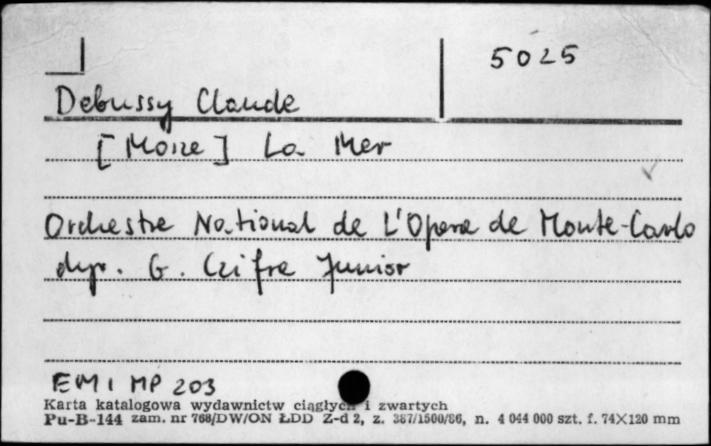 5025
Debussy Claude
[Morze] La Mer
Orchestre National de L'Opera de Monte-Carlo
dyr. G. Czifra Junior
EMI MP 203
Karta katalogowa wydawnictw ciągłych i zwartych
Pu-B-144 zam. nr 768/DW/ON ŁDD Z-d 2, z. 387/1500/86, n. 4 044 000 szt. f. 74X120 mm